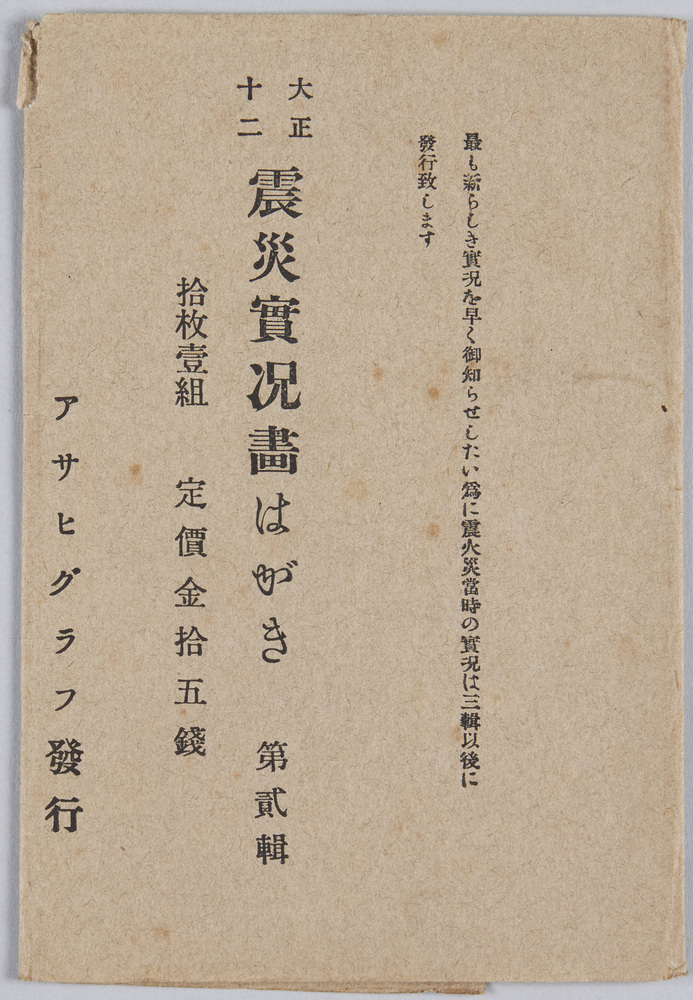 最も新らしき實况を早く御知らせしたい爲に震火災當時の實況は三輯以後に
發行致します
大正
十二
震災實況畫はがき 第貳輯
拾枚壹組 定價金拾五錢
アサヒグラフ發行